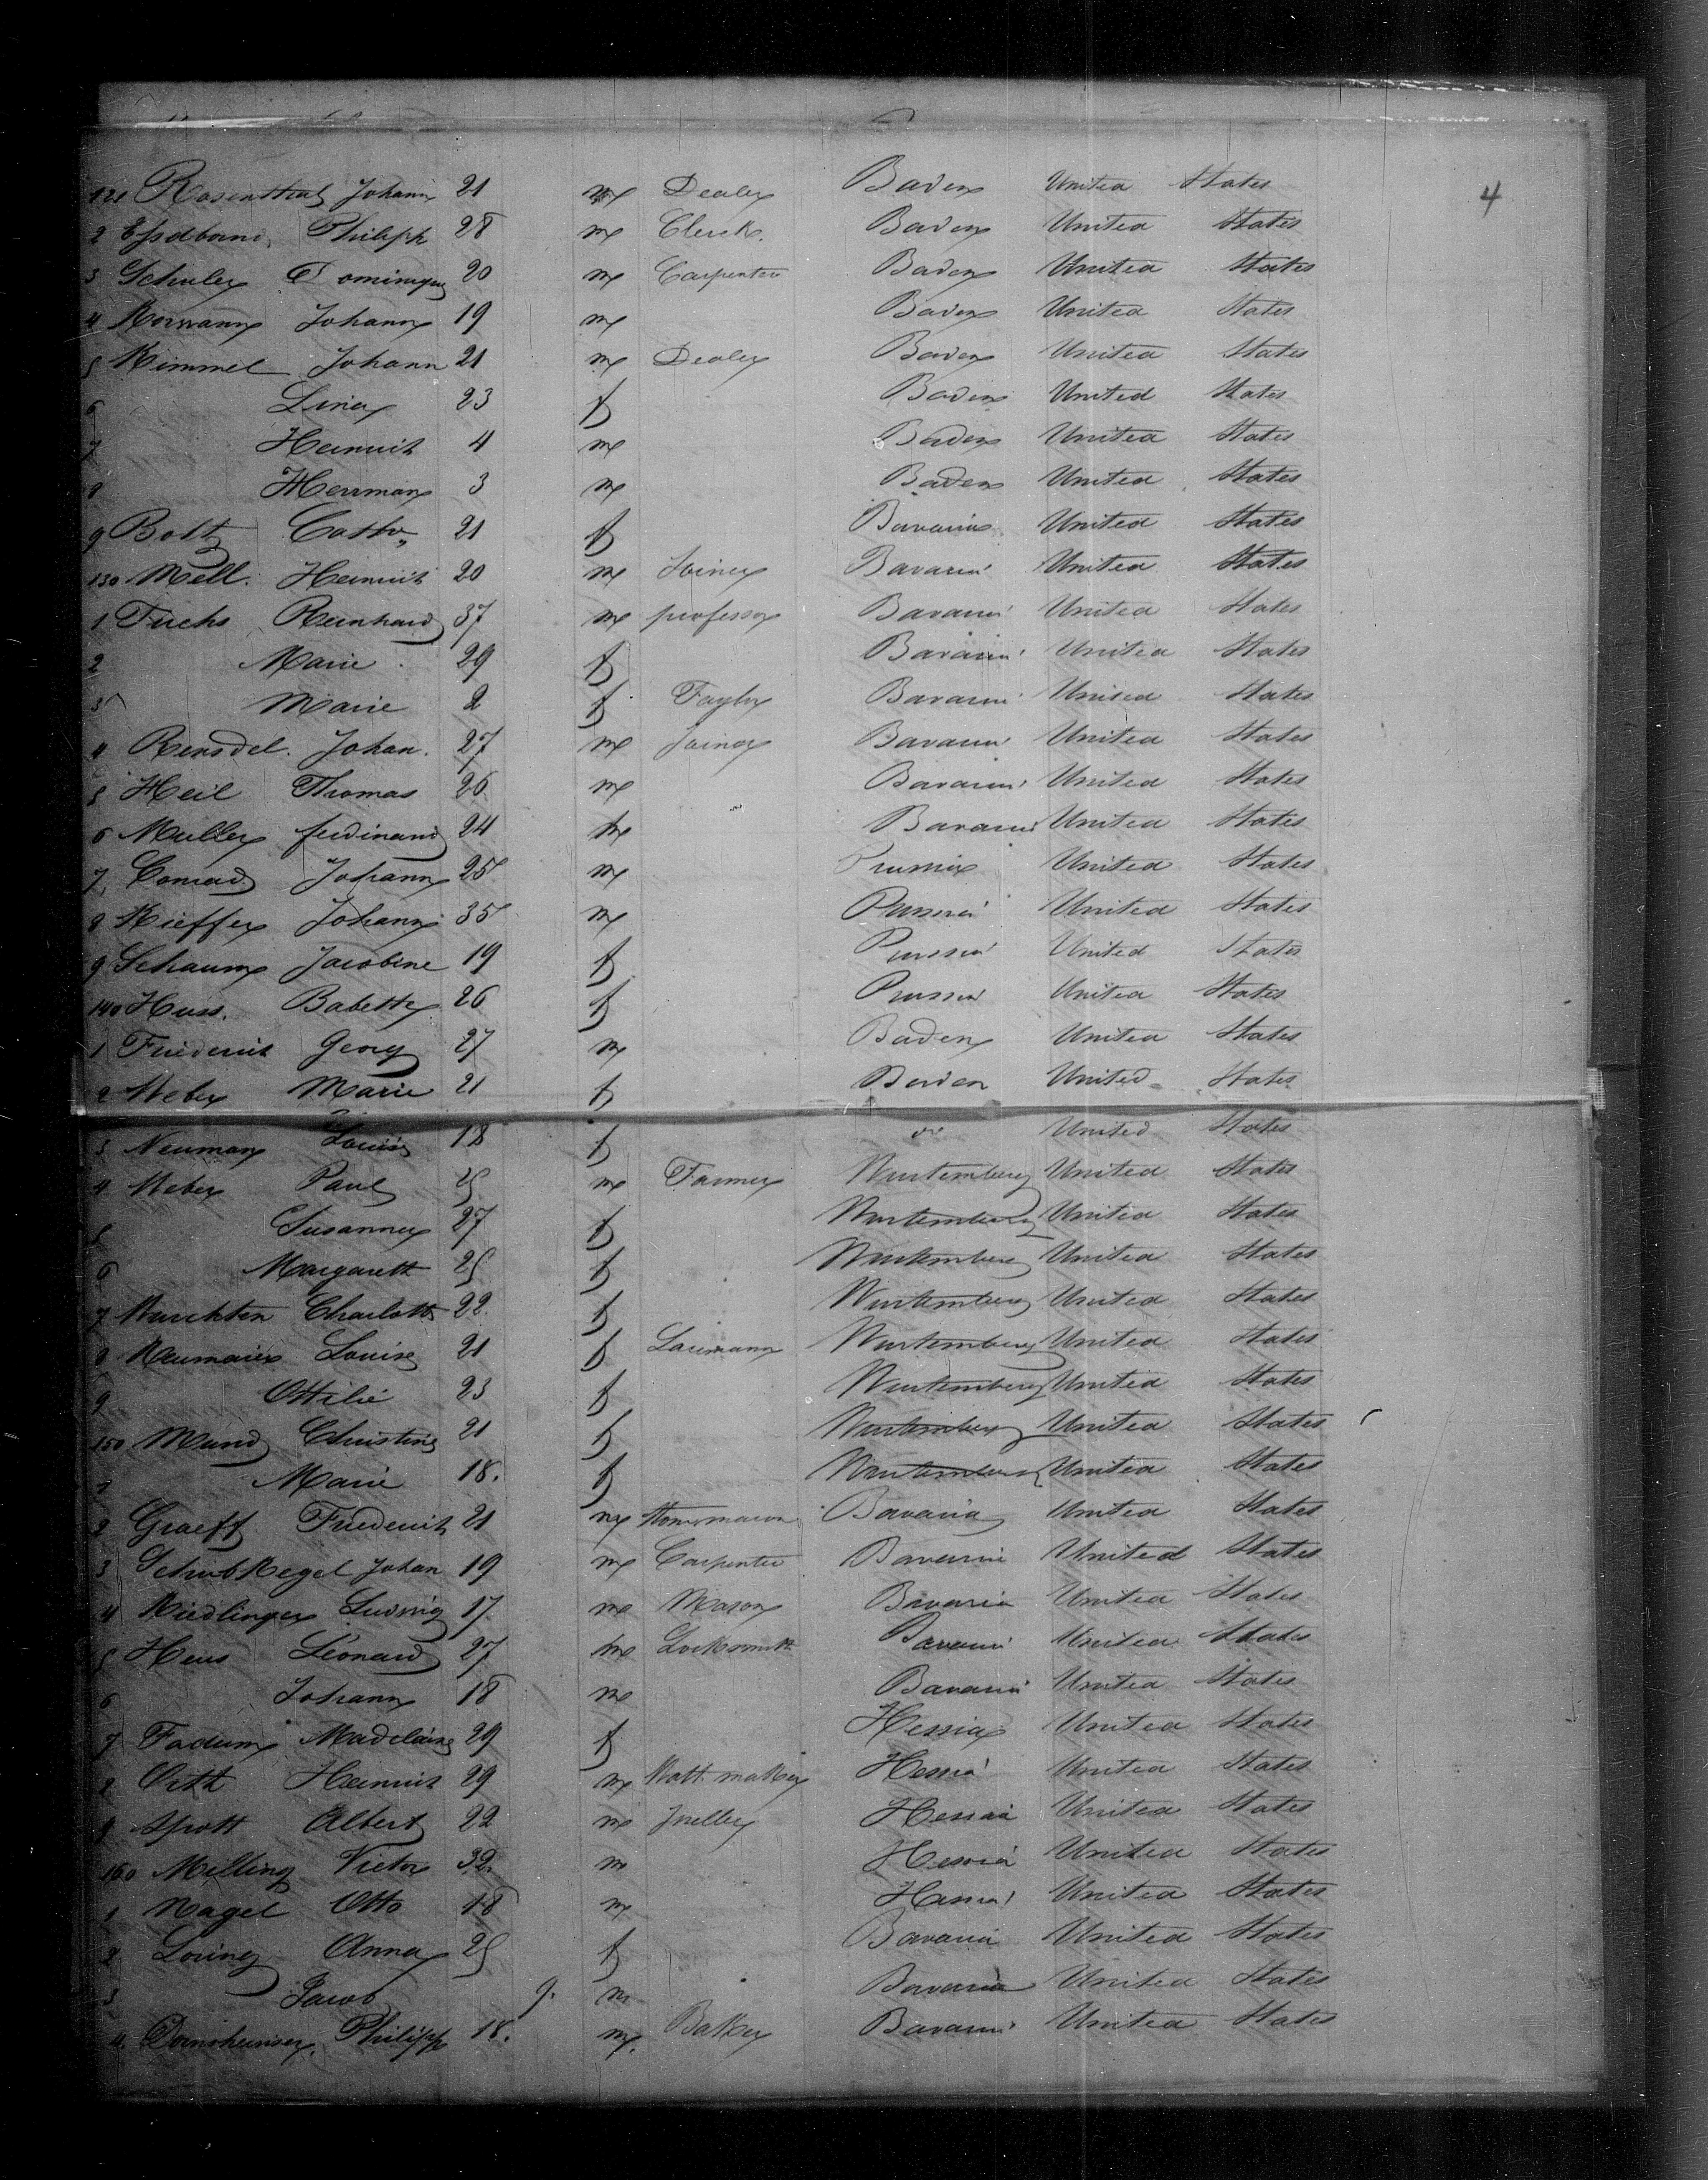 4
121 Rosenthal Johann 21 m Dealer Baden United States
2 Philipp 28 m Clerck. Baden United States
3 Schuler Dominique 20 m Carpenter Baden United States
4 Johann 19 m Baden United States
5 Kimmel Johann 21 m Dealer Baden United States
6 Lina 23 f Baden United States
7 Heinrich 4 m Baden United States
8 Herrman 3 m Baden United States
9 Bott Cath. 21 f Bavaria United States
130 Mell. Heinrich 20 m Joiner Bavaria United States
1 Fuchs Reinhard 37 m professor Bavaria United States
2 Marie 29 f Bavaria United States
3 Marie 2 f Taylor Bavaria United States
4 Johan. 27 m Joiner Bavaria United States
5 Heil Thomas 26 m Bavaria United States
6 Muller ferdinand 24 m Bavaria United States
7, Conrad Johann 25 m Prussia United States
8 Kieffer Johann 35 m Prussia United States
9 Schaum Jacobine 19 f Prussia United States
140 Huss. Babette 26 f Prussia United States
1 Friederich Georg 27 m Baden United States
2 Weber Marie 21 f Baden United States
3 Neuman Louis 18 f United States
4 Weber Paul 25 m Farmer Wurtemberg United States
5 Susanna 27 f Wurtemberg United States
6 Margareth 25 f Wurtemberg United States
7 Charlotte 22. f Wurtemberg United States
8 Neumaier Louise 21 f Wurtemberg United States
9 Ottilie 23 f Wurtemberg United States
150 Mund Christine 21 f Wurtemberg United States
1 Marie 18. f Wurtemberg United States
2 Graeff Friederich 21 m Stonemason Bavaria United States
3 Johan 19 m Carpenter Bavaria United States
4 Riedlinger Ludwig 17 m Mason Bavaria United States
5 Heus Léonard 27 m Locksmith Bavaria United States
6 Johann 18 m Bavaria United States
7 Madelaine 29 f Hessia United States
8 Orth Heinrich 29 m Hessia United States
9 Spott Albert 22 m Hessia United States
160 Milling Victor 32. m Hessia United States
1 Nagel Otto 18 m Hessia United States
2 Anna 25 f Bavaria United States
3 Jacob 9. m Bavaria United States
4. Philipp 18. m. Baker Bavaria United States